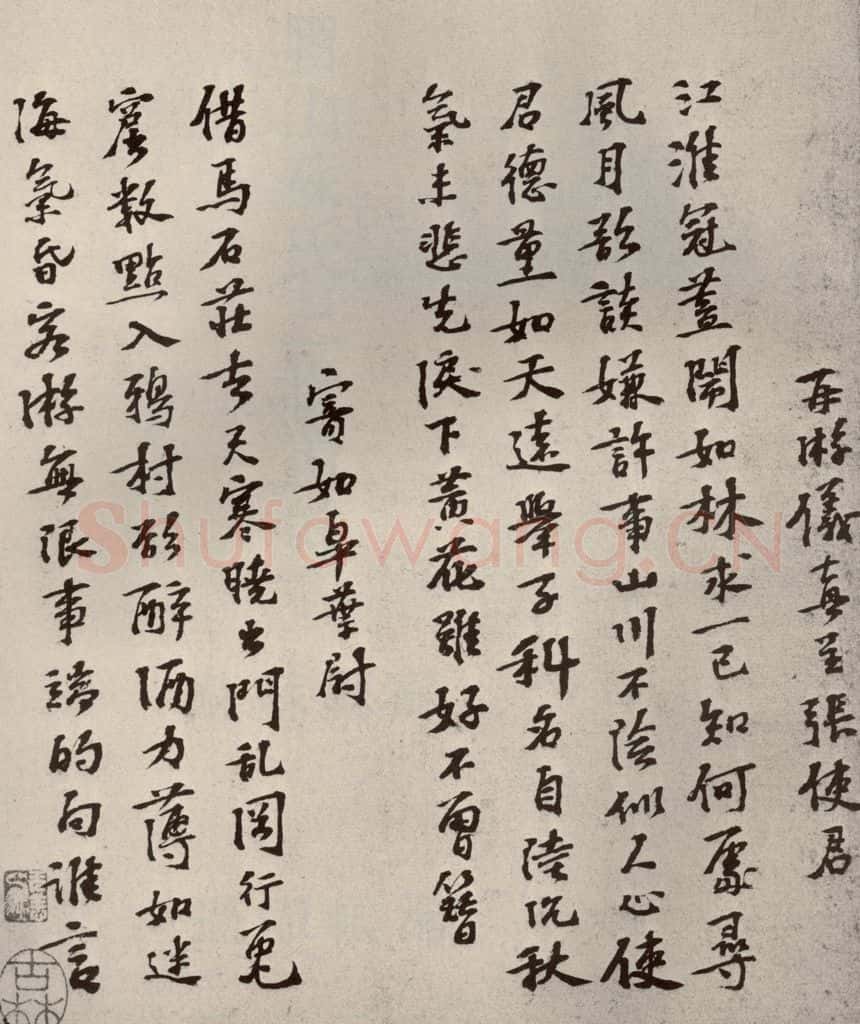 再游儀真呈張使君
江淮冠蓋鬧如林求一已知何處尋
風月欲談嫌許事山川不險似人心使
君德量如天遠舉子科名自陸沉秋
氣未悲先淚下黃花雖好不曾簪
寄如皋葉尉
借馬石莊去天寒曉出門乱岡行兔
窟數點入鴉村欲醉酒力薄如迷
海氣昏客游無限事端的向誰言
Shufawang.CN
吉林